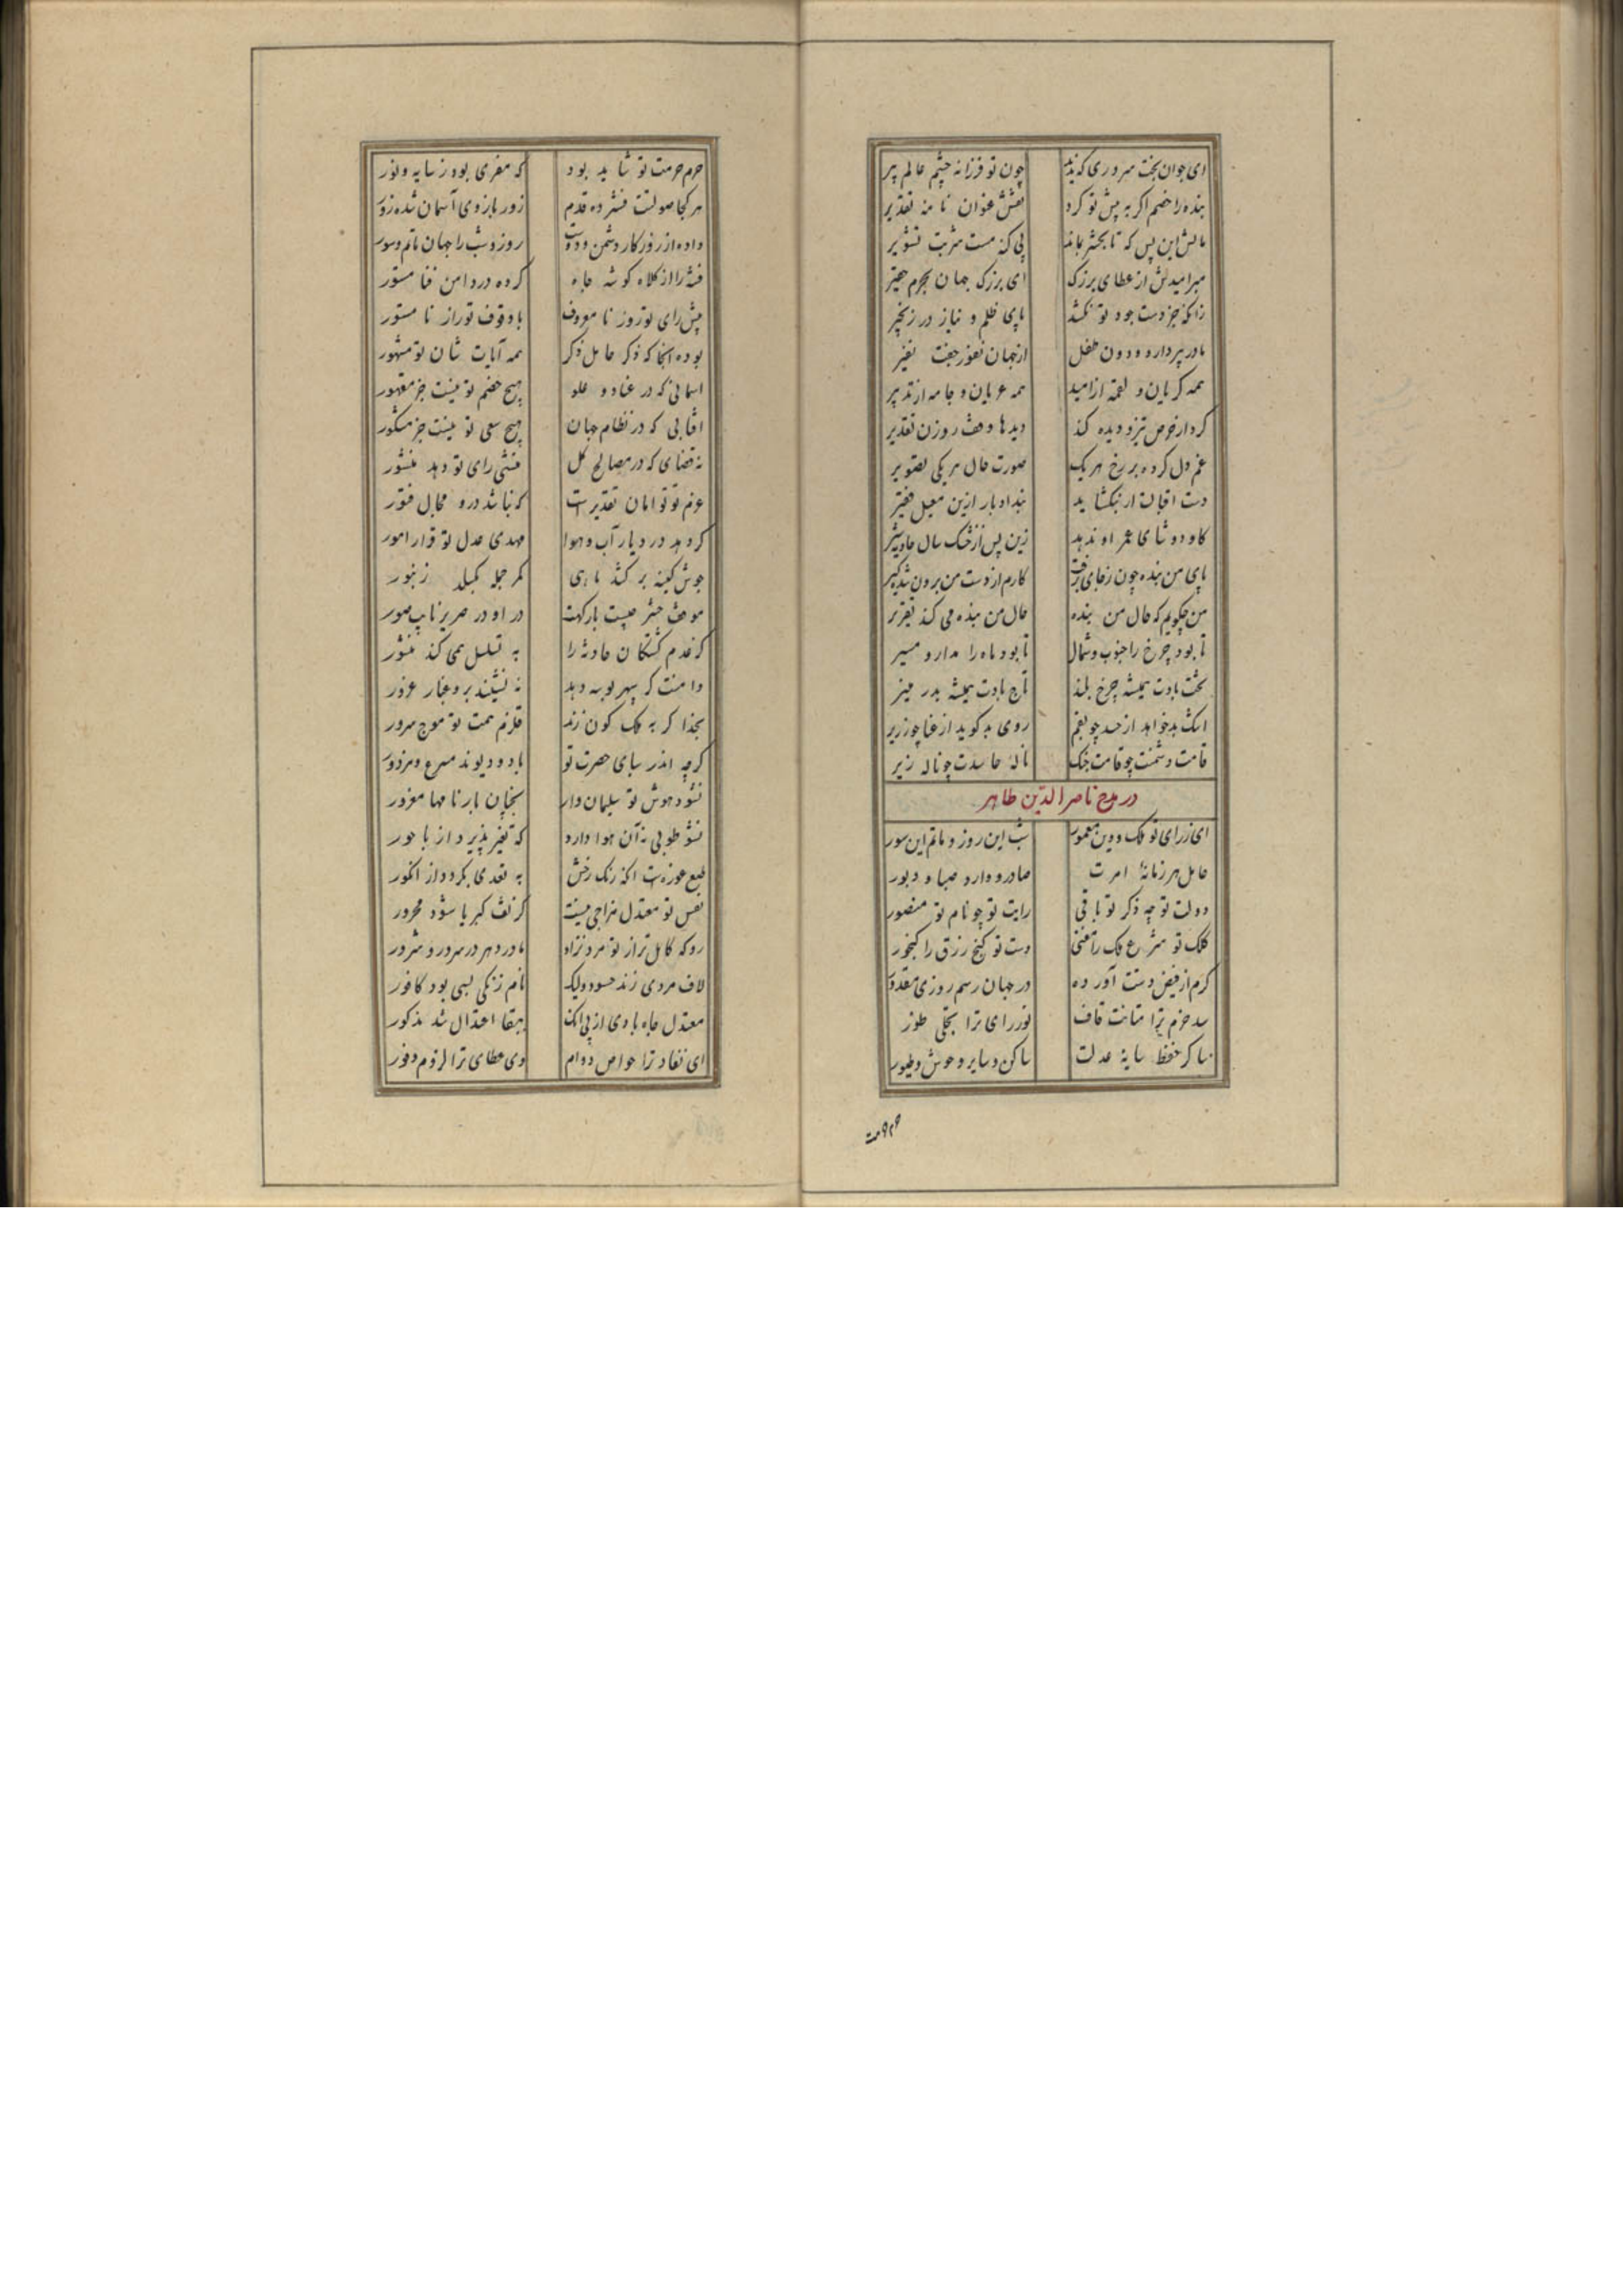 ای جوان بخت سروری که ندید چون تو فرزانه چشم عالم پیر
بنده را خصم اگر به پیش تو کرد نقش عنوان نامه تقدیر
مالش این بس که تا بحشر بماند بی گنه مست شربت تشویر
مبرامیدش از عطای بزرگ ای بزرگ جهان بجرم حقیر
زانکه جز دست جود تو نکشد پای ظلم و نیاز در زنجیر
مادر پیر دارد و دون طفل از جهان نفور جفت نفیر
همه گریان و لقمه از امید همه عریان و جامه از تدبیر
کرد از حرص تیز و دیده کند دیدها وقف روزن تقدیر
غم دل کرده بر رخ هر یک صورت حال هر یکی تصویر
دست اقبالت ار نبگشاید بند ادبار ازین معیل فقیر
گاو دوشای عمر او ندهد زین پس از خشک سال حادثه شیر
پای من بنده چون ز جای برفت کارم از دست من برون شده گیر
من چگویم که حال من بنده حال من بنده می کند تقریر
تا بود چرخ را جنوب و شمال تا بود ماه را مدار و مسیر
تخت بادت همیشه چرخ بلند تاج بادت همیشه بدر منیر
اشک بدخواهد از حسد چو بقم روی بدگوید از عنا چو زریر
قامت دشمنت چو قامت چنگ ناله حاسدت چو ناله زیر
در مدح ناصر الدین طاهر
ای ز رای تو ملک و دین معمور شب این روز و ماتم این سور
حامل هر زمانه امرت صادر و وارد صبا و دبور
دولت تو چه ذکر تو باقی رایت تو چو نام تو منصور
کلک تو شرع ملک را مفتی دست تو گنج رزق را گنجور
کرم از فیض دستت آورده در جهان رسم روزی مقدور
سد حزم ترا متانت قاف نور رای ترا تجلی طور
ساکر حفظ سایه عدلت ساکن و سایر وحوش و طیور
حرم حرمت تو شاید بود که مفری بود ز سایه و نور
هر کجا صولتت فشرده قدم زور بازوی آسمان شده زور
داده از روزگار دشمن و دوست روز و شب را جهان ماتم و سور
فتنه را از کلاه گوشه جاه کرده در دامن فنا مستور
پیش رای تو روز نا معروف با وقوف تو راز نا مستور
بوده آنجا که ذکر حامل ذکر همه آیات شان تو مشهور
آسمانی که در عناد و علو هیچ خصم تو نیست جز مقهور
آفتابی که در نظام جهان هیچ سعی تو نیست جز مشکور
نه قضای که در مصالح کل منشی رای تو دهد منشور
عزم تو توامان تقدیرست که نباشد درو مجال فتور
گر دهد در دیار آب و هوا مهدی عدل تو قرار امور
جوش کینه بر کشد ماهی کمر حمله بگسلد زنبور
موقف حشر چیست بارگهت در او در صریر ناب صور
که عدم کشتگان حادثه را به تسلسل همی کند منشور
دامنت گر سپهر بوسه دهد نه نشیند برو غبار غرور
بخدا گر به ملک کون زند قلزم همت تو موج سرور
گرچه اندر سبای حضرت تو باد و دیوند مسرع و مزدور
نشود هوش تو سلیمان وار بچنان بارنامها مغرور
نشو طوبی نه آن هوا دارد که تغیر پذیرد از باحور
طبع غوره ست آنکه رنگ رخش به تعدی بگردد از انگور
نفس تو معتدل مزاجی نیست کز تف کبریا شود محرور
رو که کامل تر از تو مرد نزاد مادر دهر در سرور و شرور
لاف مردی زند حسود ولیک نام زنگی بسی بود کافور
معتدل جاه بادی از پی آنک ببقا اعتدال شد مذکور
ای نفاد ترا خواص دوام وی عطای ترا لزوم وفور